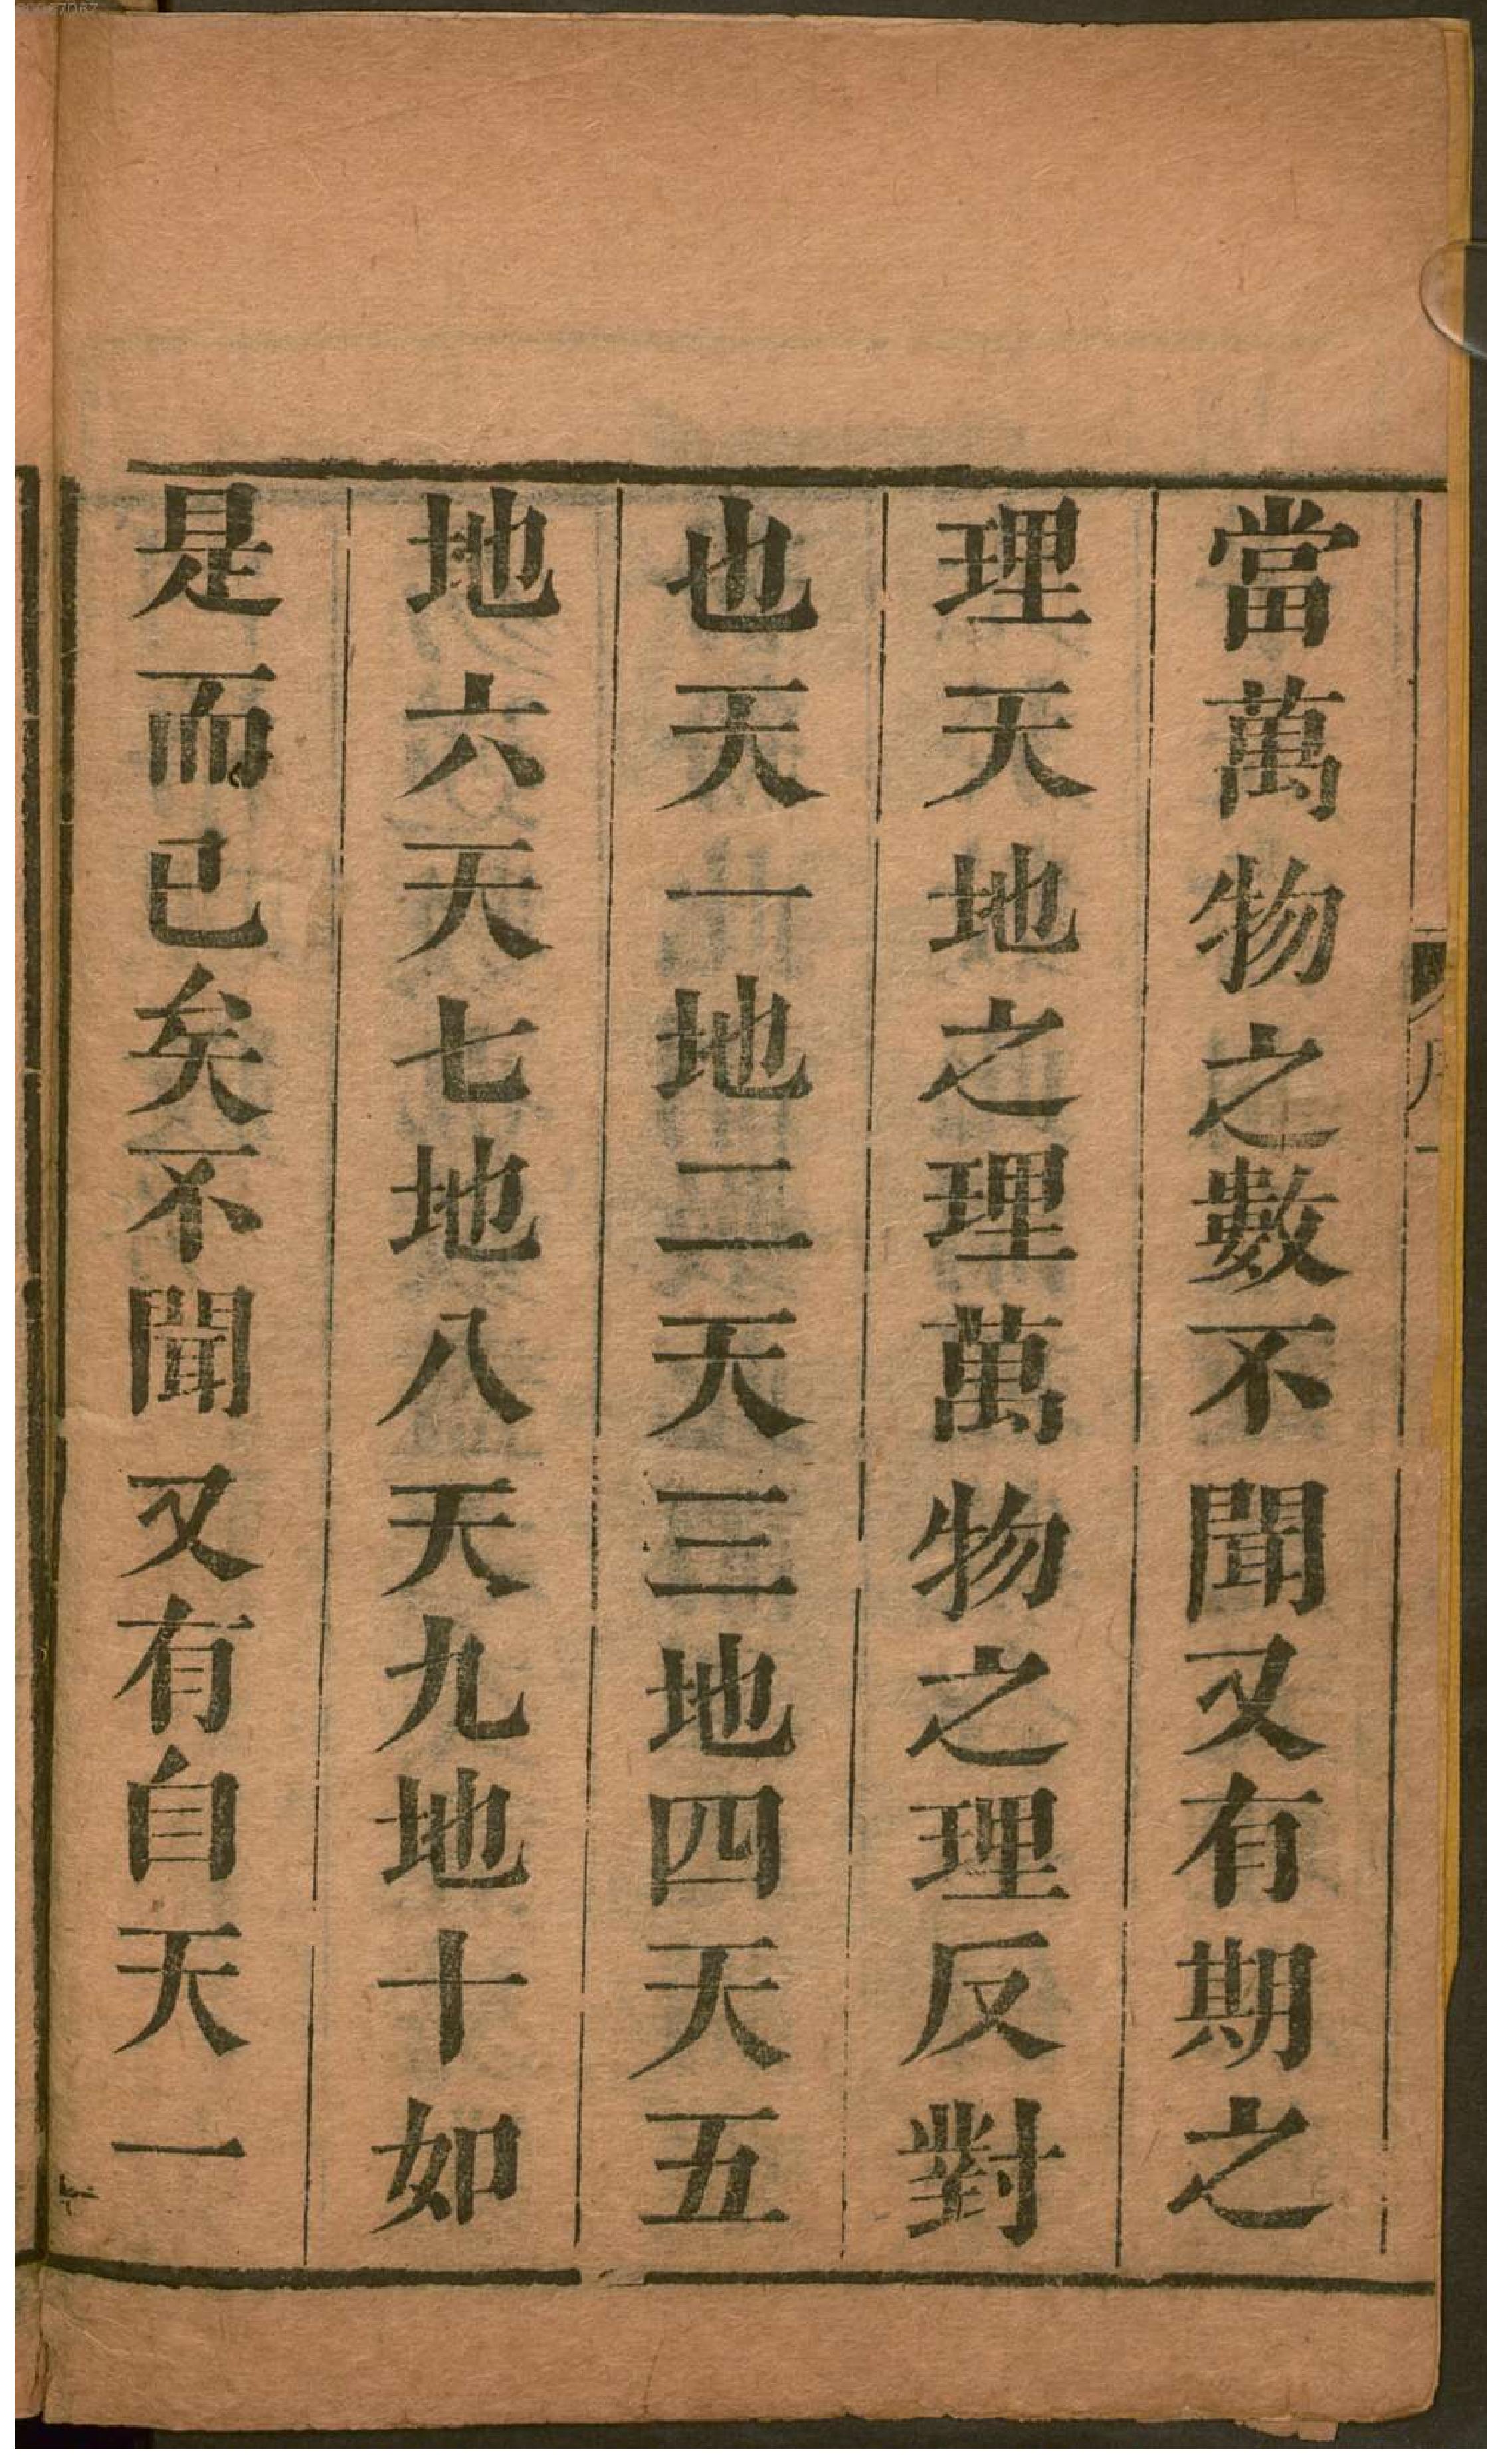 當萬物之數不聞又有期之
理天地之理萬物之理反對
也天一地二天三地四天五
地六天七地八天九地十如
是而已矣不聞又有自天一